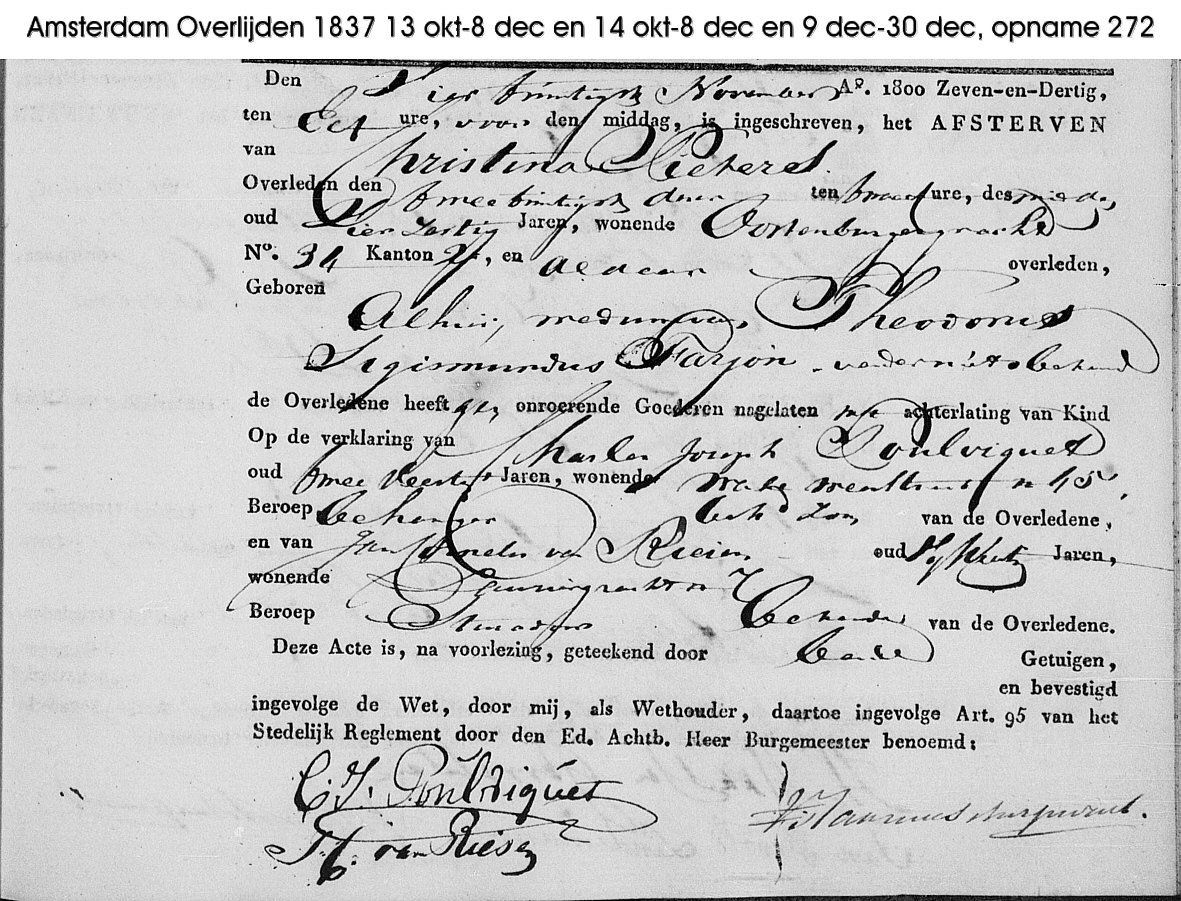 Amsterdam Overlijden 1837 13 okt-8 dec en 14 okt-8 dec en 9 dec-30 dec, opname 272
Den Vier twintigste November Aº. 1800 Zeven-en-Dertig,
ten Elf ure, voor den middag, is ingeschreven, het AFSTERVEN
van Christina Pieters
Overleden den twee twintigste dezer ten twee ure, des midds
oud Vier Zestig Jaren, wonende Oostenburgergracht
Nº. 34 Kanton en aldaar overleden,
Geboren
Alhier, weduwe van Theodorus
Sigismundus Farjon
de Overledene heeft gn onroerende Goederen nagelaten achterlating van Kind
Op de verklaring van Charles Joseph Poulviquet
oud twee Veertig Jaren, wonende n 45,
Beroep behanger beh d Zoon van de Overledene,
en van Jan Cornelis van Riesen oud Jaren,
wonende n 7
Beroep bekende van de Overledene.
Deze Acte is, na voorlezing, geteekend door beide Getuigen,
en bevestigd
ingevolge de Wet, door mij, als Wethouder, daartoe ingevolge Art. 95 van het
Stedelijk Reglement door den Ed. Achtb. Heer Burgemeester benoemd:
C. J. Poulviquet
van Riesen